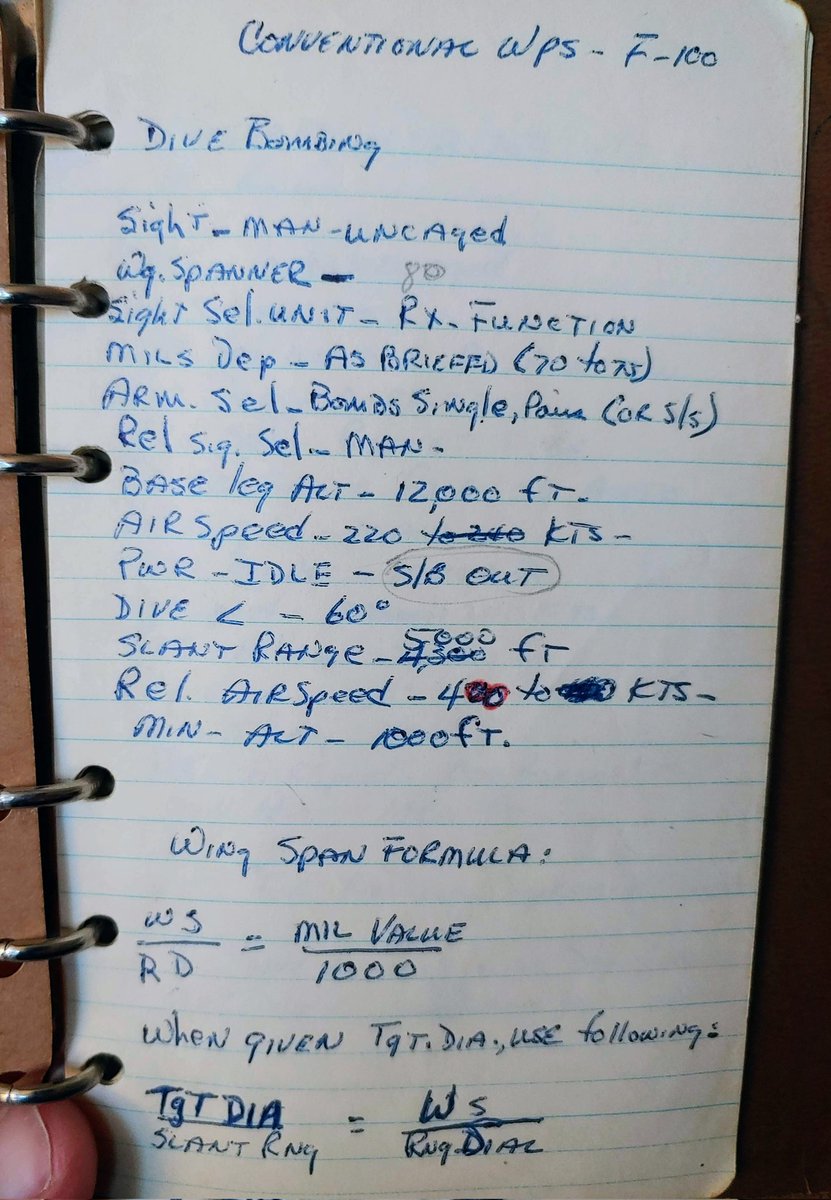 CONVENTIONAL WPS - F-100
DIVE BOMBING
Sight - MAN - UNCAged
Wg. SPANNER - 80
Sight Sel. UNIT - RX - FUNCTION
MILS Dep - AS BRIEFED (70 to 75)
ARM. Sel - BOMBS Single, Pairs (OR S/S)
Rel Sig. Sel - MAN -
BASE leg ALT - 12,000 fT.
AIRSpeed - 220 KTS -
PWR - IDLE - S/B OUT
DIVE < - 60°
SLANT RANge - 5000 fT
Rel. AIRSpeed - 400 to KTS -
MIN - ALT - 1000 fT.
Wing SPAN FORMULA:
WS/RD = MIL VALUE/1000
When given TgT. DIA., USE following:
TgT DIA/SLANT RNg = WS/RNg. DIAL